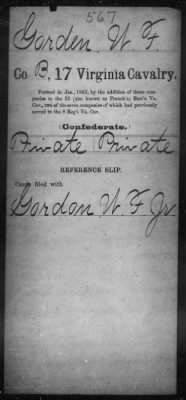 567
Gorden, W. F.
Co. B, 17 Virginia Cavalry.
Formed in Jan., 1863, by the addition of three companies to the 33 (also known as French's) Batt'n Va. Cav., two of the seven companies of which had previously served in the 8 Reg't Va. Cav.
(Confederate.)
Private Private
REFERENCE SLIP.
Cards filed with
Gordon W. F. Jr